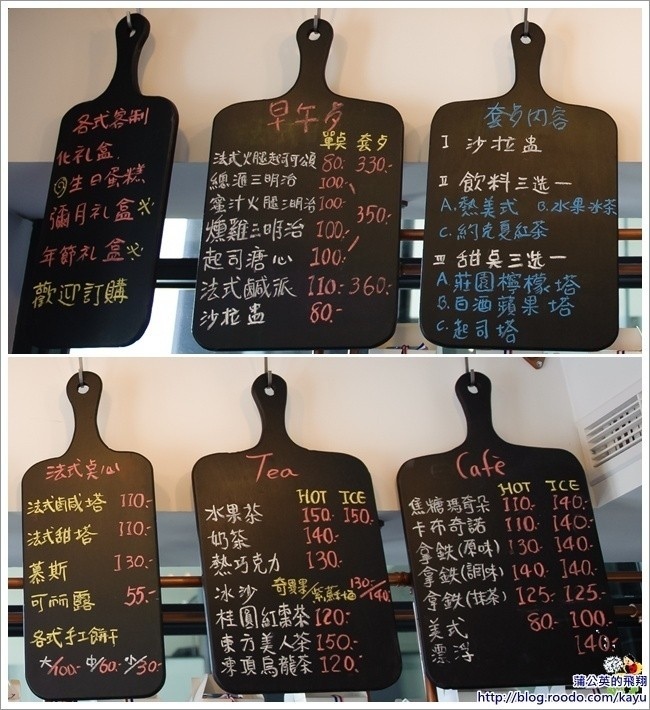 各式客制
化禮盒
生日蛋糕
彌月禮盒
年節禮盒
歡迎訂購
早午歺
單点 套歺
法式火腿起司可頌 80.- 330.-
總滙三明治 100.-
蜜汁火腿三明治 100.-
350.-
燻雞三明治 100.-
起司溏心 100.-
法式鹹派 110.- 360.-
沙拉盅 80.-
套歺內容
I 沙拉盅
II 飲料三选一
A.熱美式 B.水果冰茶
C.約克夏紅茶
III 甜桌三选一
A.莊園檸檬塔
B.白酒蘋果塔
C.起司塔
法式桌心
法式鹹塔 110.-
法式甜塔 110.-
慕斯 130.-
可丽露 55.-
各式手工餅干
大/100.- 中/60.- 小/30.-
Tea
HOT ICE
水果茶 150.- 150.-
奶茶 140.-
熱巧克力 130.-
冰沙 奇異果/紫蘇梅 130.-/140.-
桂圓紅棗茶 120.-
東方美人茶 150.-
凍頂烏龍茶 120.-
Cafè
HOT ICE
焦糖瑪奇朵 110.- 140.-
卡布奇諾 110.- 140.-
拿鉄(原味) 130.- 140.-
拿鉄(調味) 140.- 140.-
拿鉄(抹茶) 125.- 125.-
美式 80.- 100.-
漂浮 140.-
蒲公英的飛翔
http://blog.roodo.com/kayu